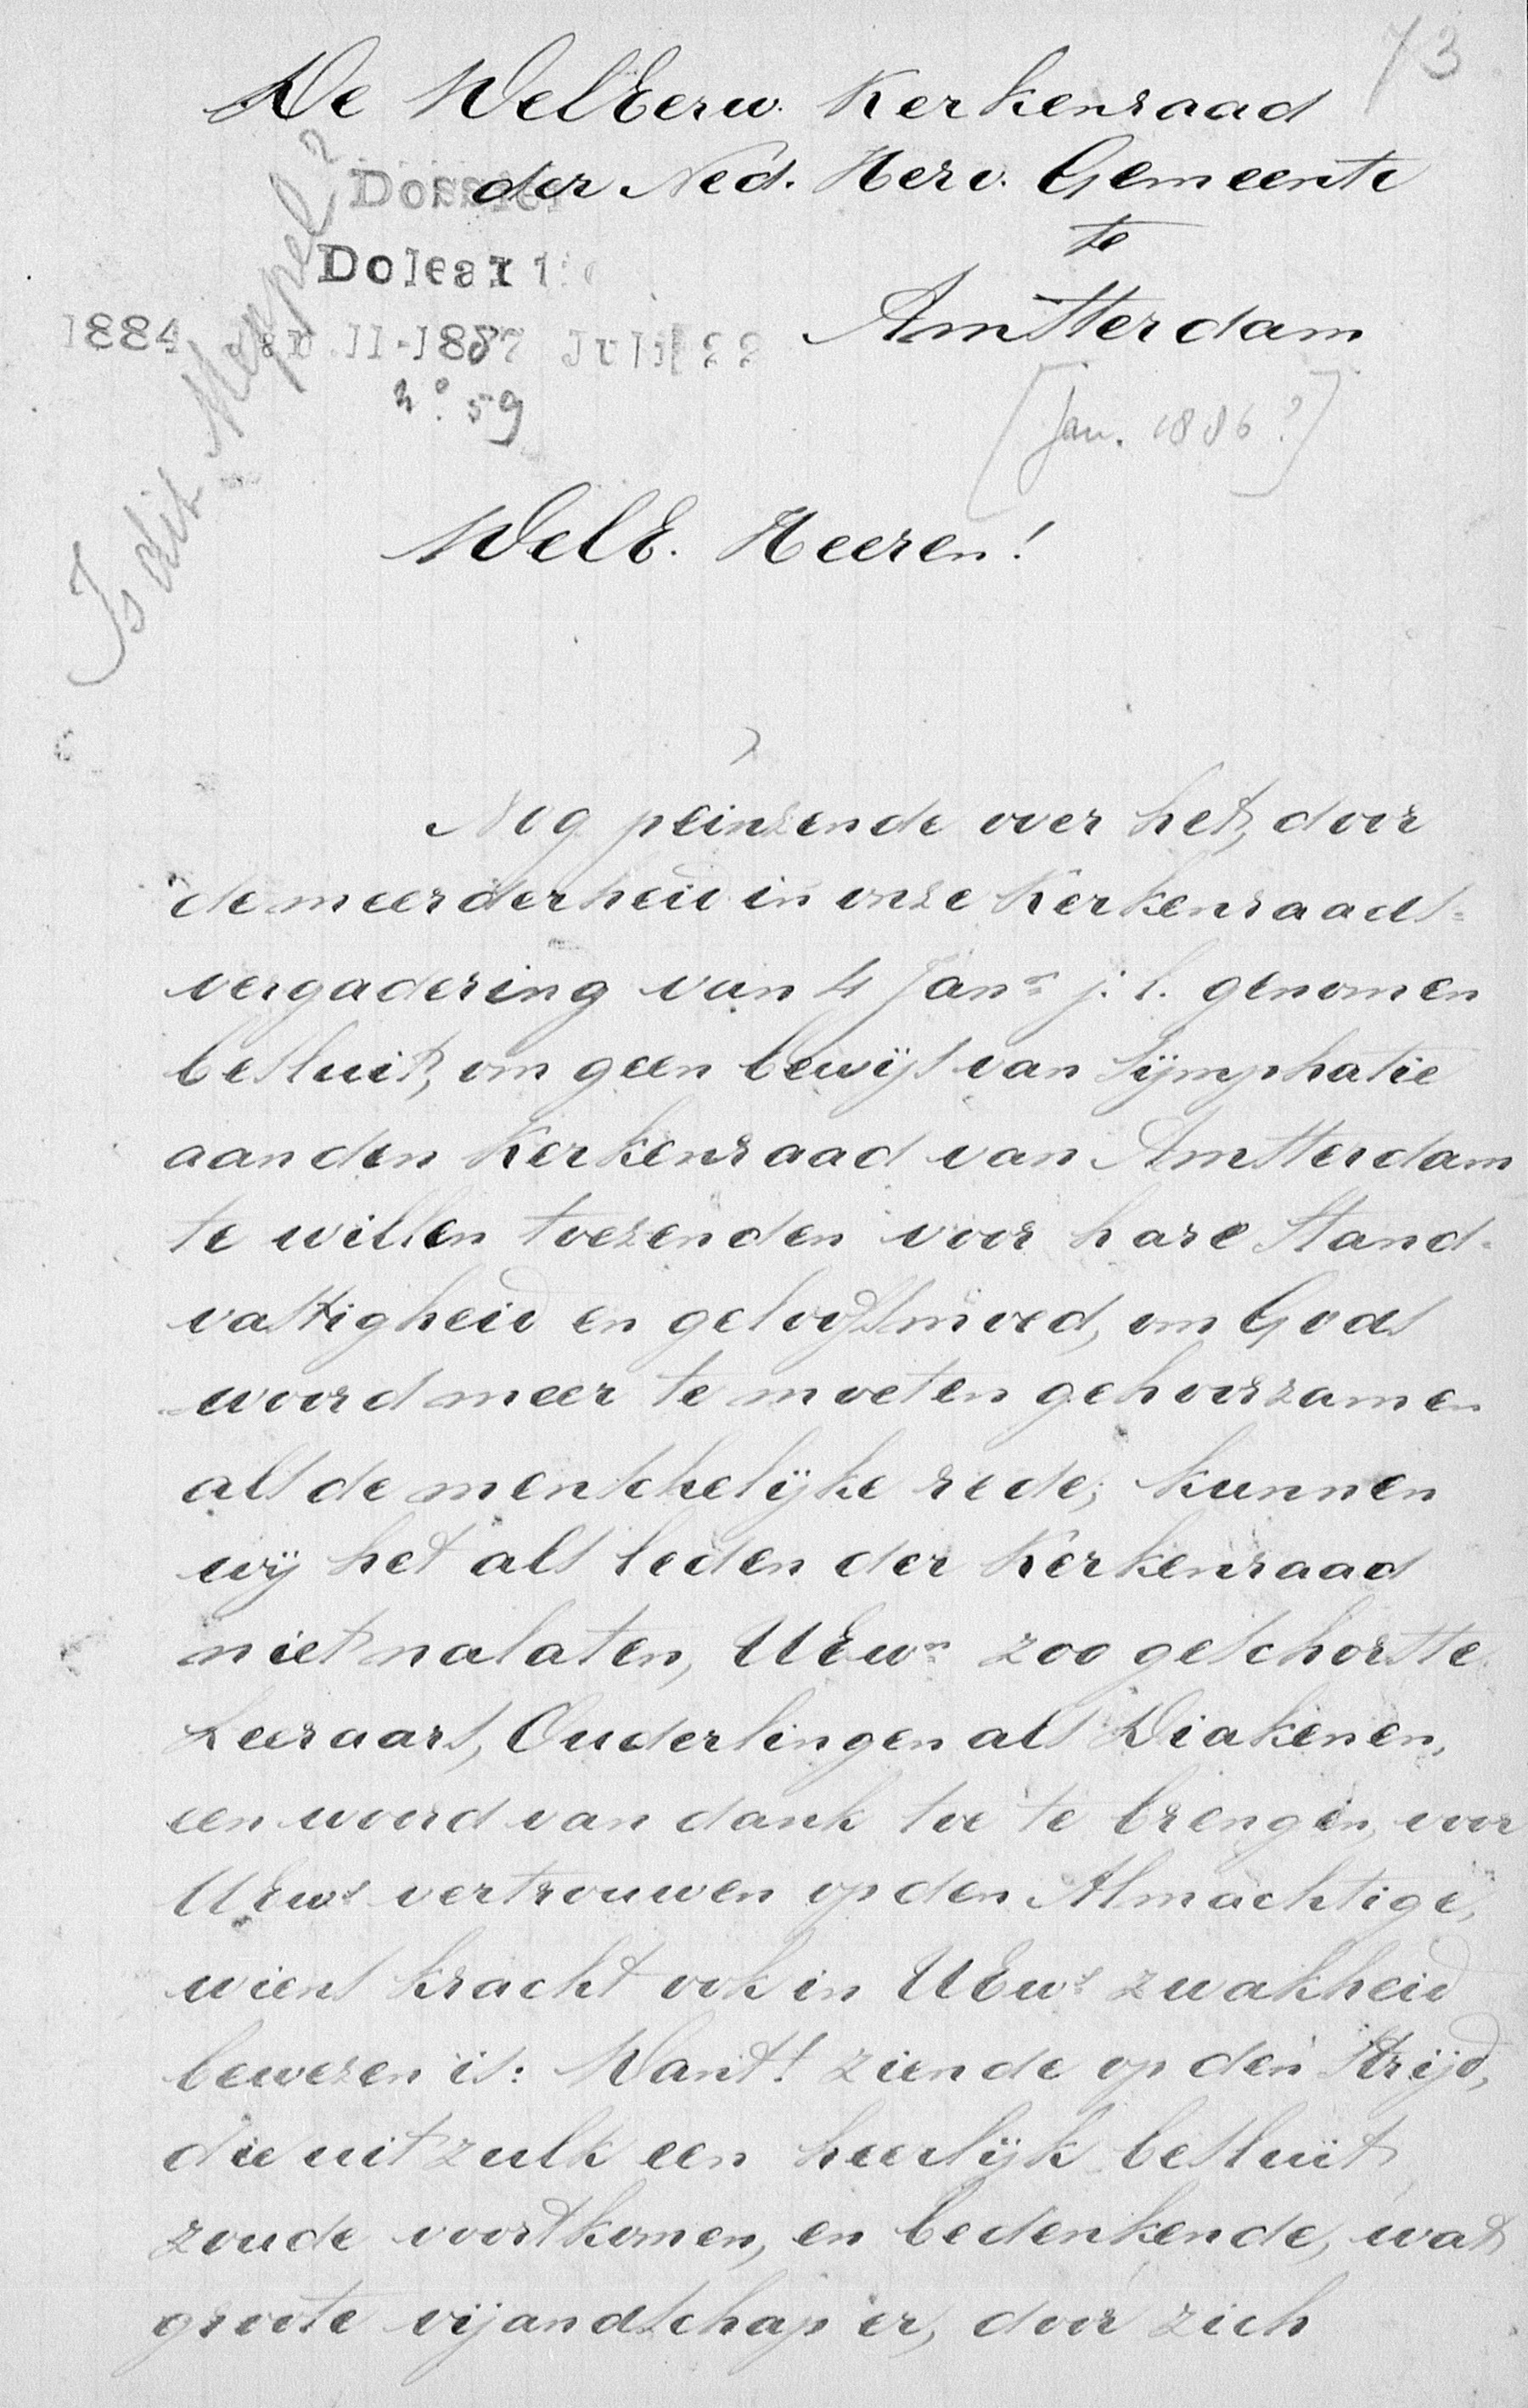 73
De WelEerw. Kerkenraad
der Ned. Herv. Gemeente
te
Amsterdam
Dossier
Doleantie
1884 11-1887 Juli 22
no. 59
[Jan. 1886?]
Is dit Meppel?
WelE. Heeren!
Nog peinzende over het, door
de meerderheid in onze Kerkenraads=
vergadering van 4 Janr j.l. genomen
besluit, om geen bewijs van Sijmphatie
aan den Kerkenraad van Amsterdam
te willen toezenden voor hare stand-
vastigheid en geloofsmoed, om Gods
woord meer te moeten gehoorzamen
als de menschelijke rede; kunnen
wij het als leden der Kerkenraad
niet nalaten, UEwn zoo geschorste
Leeraars, Ouderlingen als Diakenen,
een woord van dank toe te brengen, voor
UEws vertrouwen op den Almachtige,
wiens kracht ook in UEws zwakheid
bewezen is: Want! ziende op den Strijd,
die uit zulk een heerlijk besluit
zoude voortkomen, en bedenkende, wat
groote vijandschap er, door zich